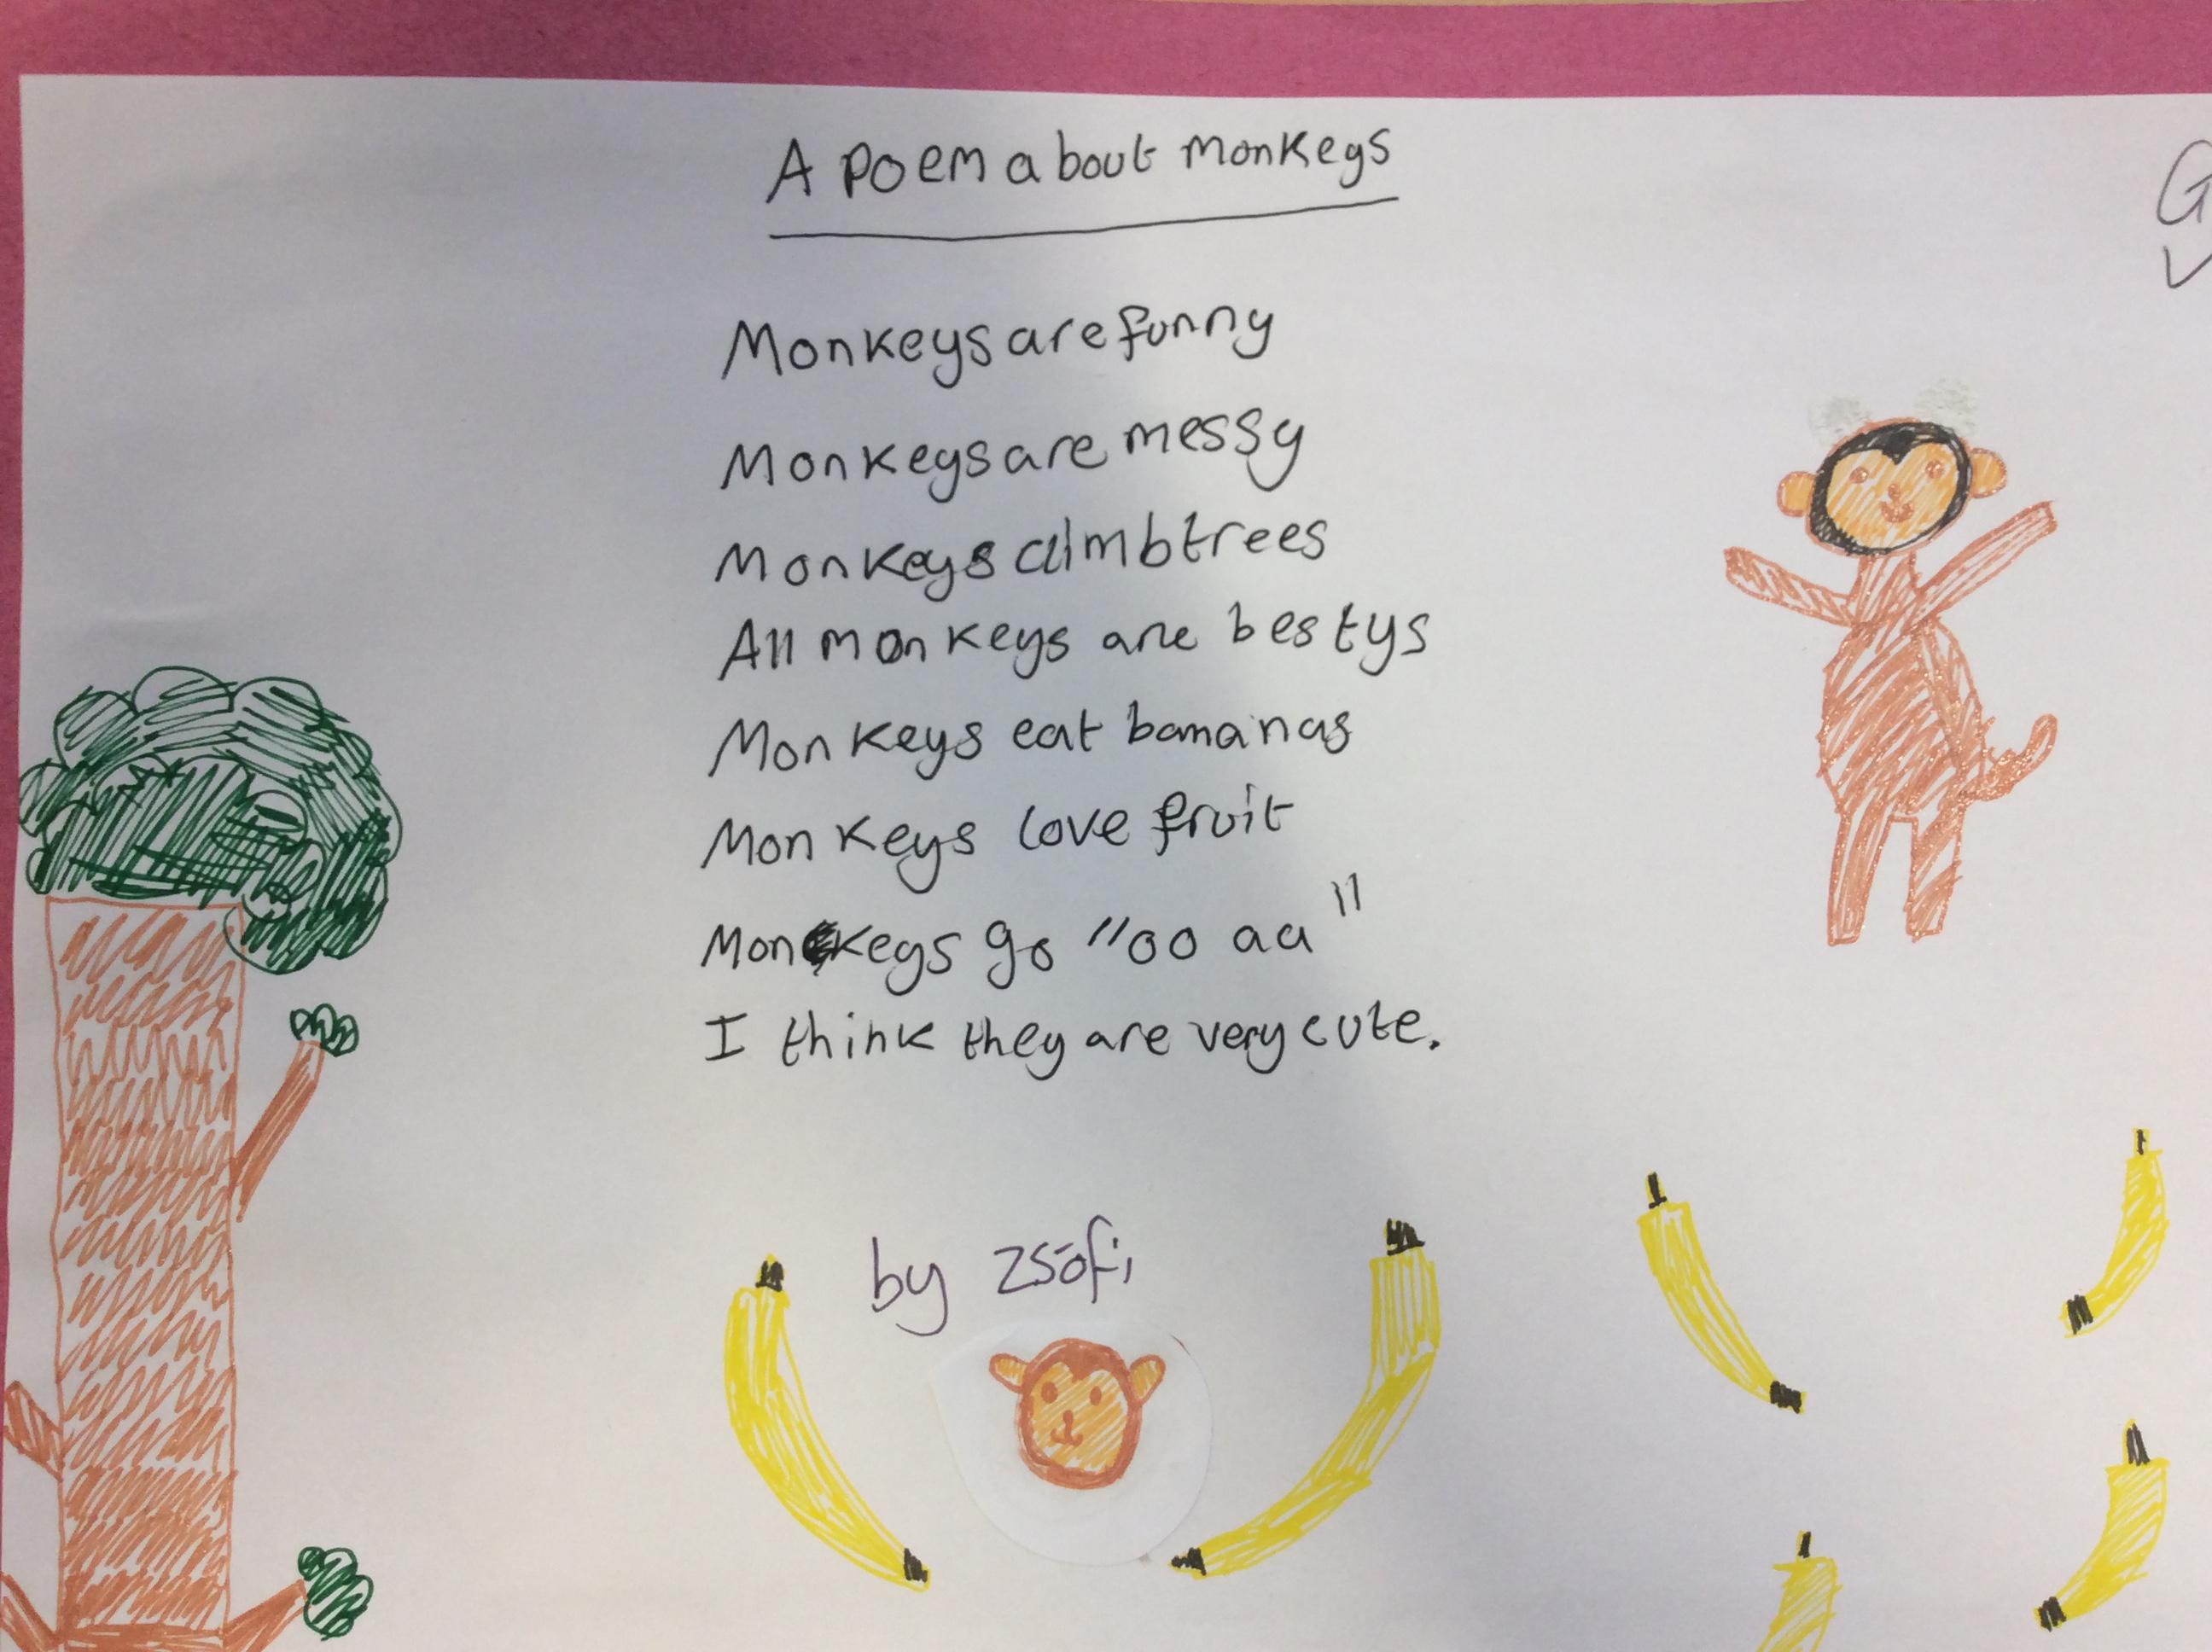 A poem about monkeys
Monkeys are funny
Monkeys are messy
Monkeys climb trees
All monkeys are bestys
Monkeys eat bananas
Monkeys love fruit
Monkeys go "oo aa"
I think they are very cute.
by zsófi